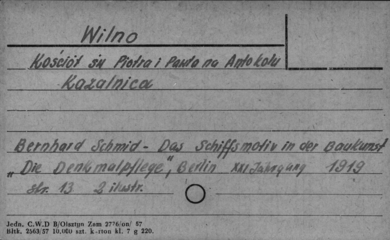 Wilno
Kościół św Piotra i Pawła na Antokolu
Kazalnica
Bernhard Schmid - Das Schiffsmotiv in der Baukunst
"Die Denkmalpflege", Berlin XXI Jahrgang 1919
str. 13 2 ilustr.
Jedn. C.W.D B/Olsztyn Zam 2776/on/ 57
Błtk. 2563/57 10.000 szt. karton kl. 7 g 220.